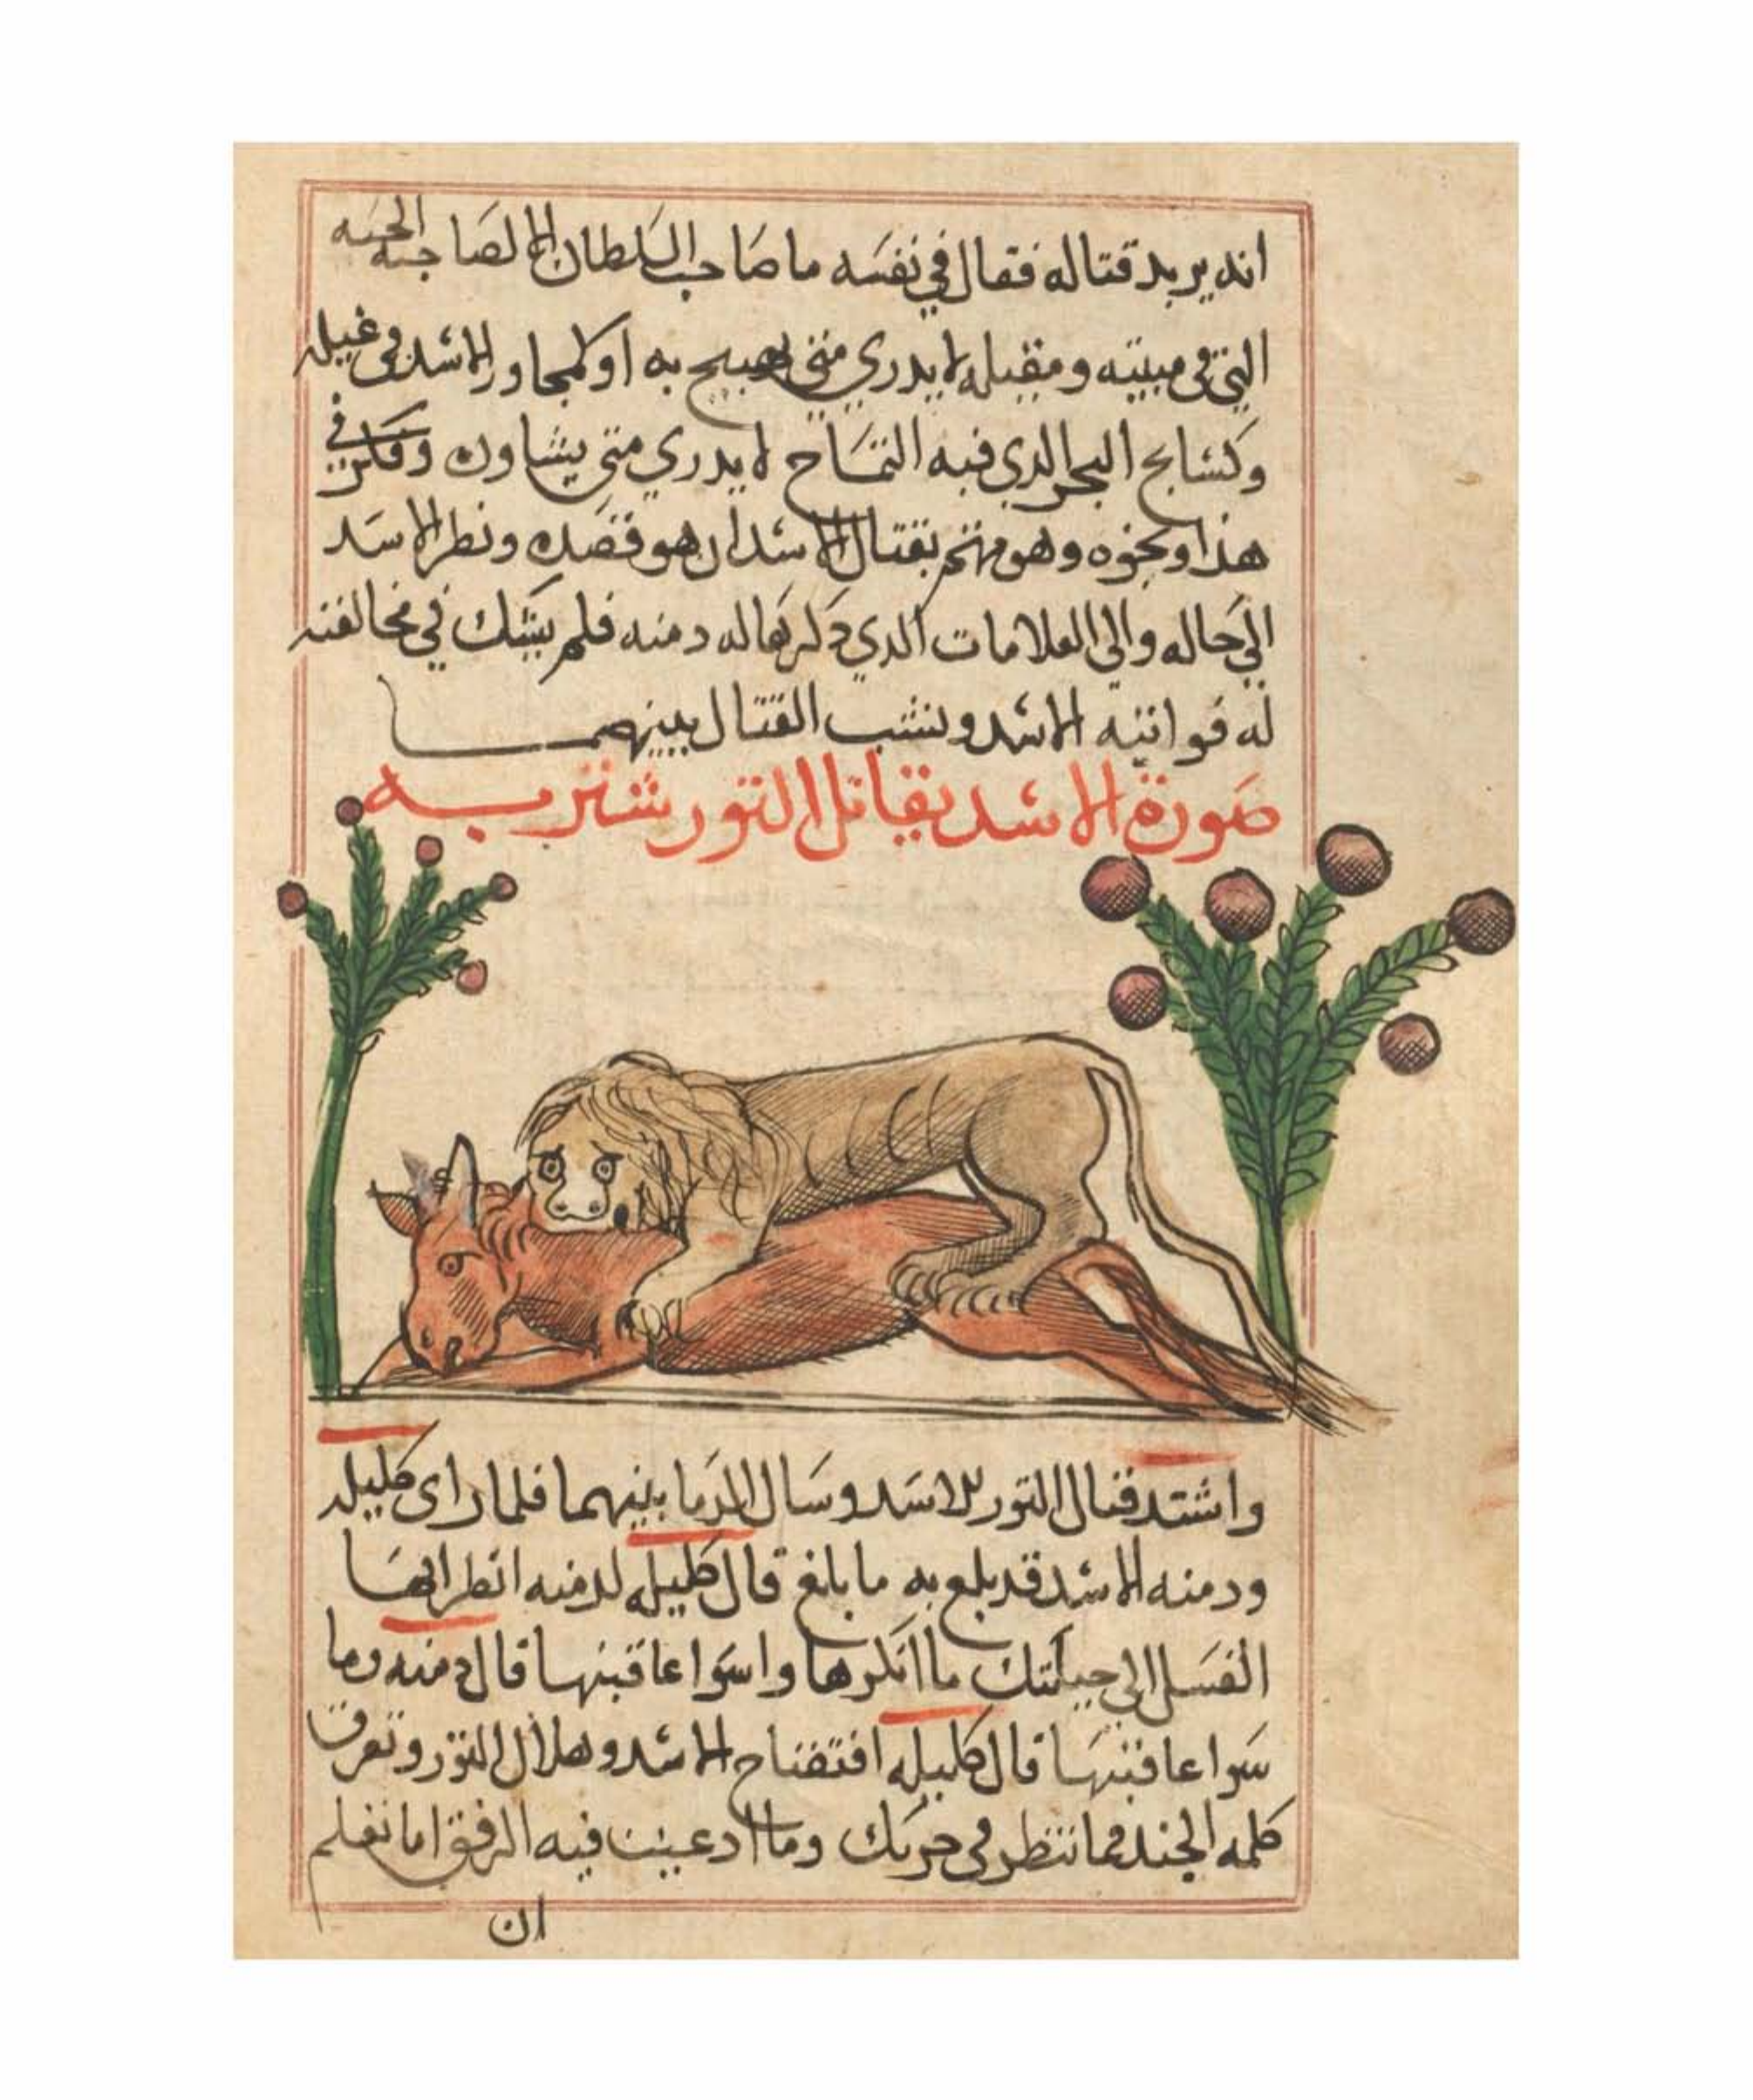 انه يريد قتاله فقال في نفسه ما صاحب السلطان الا لصاحب الحيه
التي في مبيته ومقيله لا يدري متى به او كمجاور الاسد في غيله
وكسابح البحر الدي فيه التمساح لا يدري متى يشاوره وفكر في
هذا ونحوه وهو مهتم بقتال الاسد ان هو قصده ونظر الاسد
الى حاله والى العلامات الدي دكرها له دمنه فلم يشك في مخالفته
له فواثبه الاسد ونشب القتال بينهما
صورة الاسد يقاتل الثور شنزبه
واشتد قتال الثور للاسد وسال الدما بينهما فلما راى كليله
ودمنه الاسد قد بلغ به ما بلغ قال كليله لدمنه انظر ايها
الفسل الى حيلتك ما انكرها واسوا عاقبتها قال دمنه وما
سوا عاقبتها قال كليله افتضاح الاسد وهلاك الثور وتفرق
كلمه الجند فما تنتظر في وما ادعيت فيه الرفق اما تعلم
ان